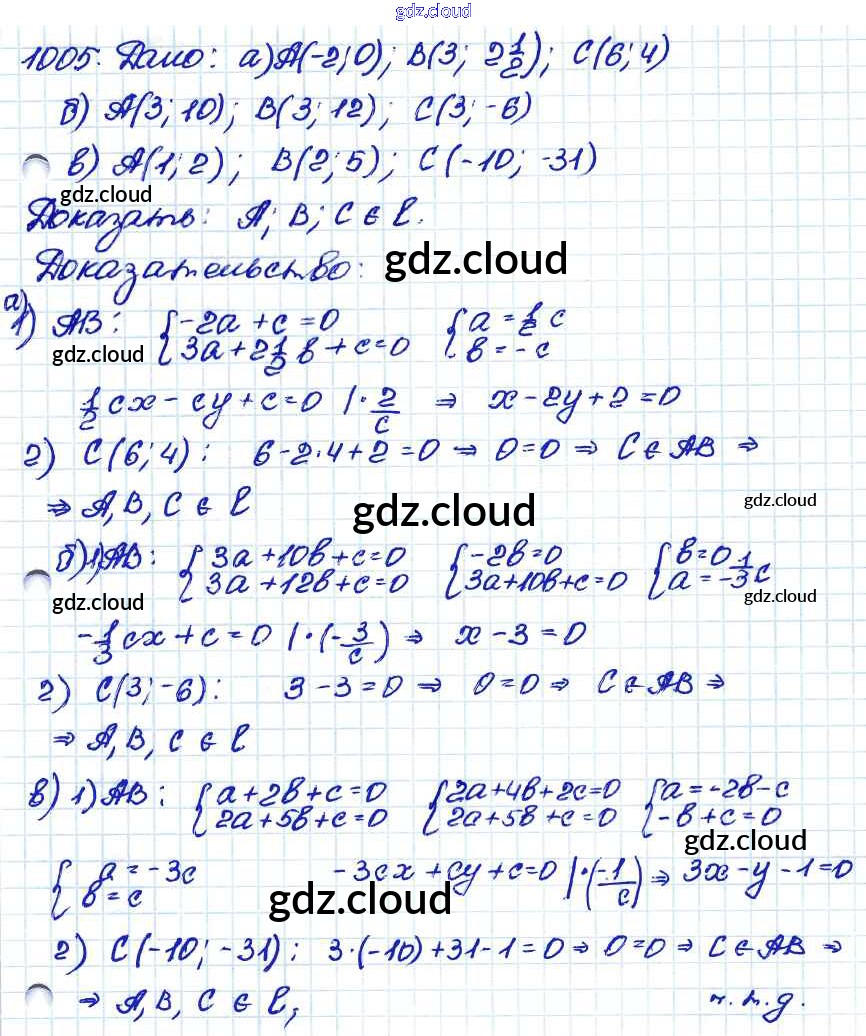 gdz.cloud
1005. Дано: а) A(-2; 0); B(3; 2½); C(6; 4)
б) A(3; 10); B(3; 12); C(3; -6)
в) A(1; 2); B(2; 5); C(-10; -31)
gdz.cloud
Доказать: A; B; C ∈ l.
Доказательство: gdz.cloud
а)
1) AB: { -2a + c = 0 { a = ½ c
{ 3a + 2½ b + c = 0 { b = - c
gdz.cloud
½ cx - cy + c = 0 | · 2/c ⇒ x - 2y + 2 = 0
2) C(6; 4): 6 - 2·4 + 2 = 0 ⇒ 0 = 0 ⇒ C ∈ AB ⇒
⇒ A, B, C ∈ l gdz.cloud gdz.cloud
б) 1) AB: { 3a + 10b + c = 0 { -2b = 0 { b = 0
{ 3a + 12b + c = 0 { 3a + 10b + c = 0 { a = -⅓ c
gdz.cloud gdz.cloud
-⅓ cx + c = 0 | · (-3/c) ⇒ x - 3 = 0
2) C(3; -6): 3 - 3 = 0 ⇒ 0 = 0 ⇒ C ∈ AB ⇒
⇒ A, B, C ∈ l
в) 1) AB: { a + 2b + c = 0 { 2a + 4b + 2c = 0 { a = -2b - c
{ 2a + 5b + c = 0 { 2a + 5b + c = 0 { -b + c = 0
gdz.cloud
{ a = -3c -3cx + cy + c = 0 | · (-1/c) ⇒ 3x - y - 1 = 0
{ b = c
gdz.cloud
2) C(-10; -31): 3·(-10) + 31 - 1 = 0 ⇒ 0 = 0 ⇒ C ∈ AB ⇒
⇒ A, B, C ∈ l, ч.т.д.